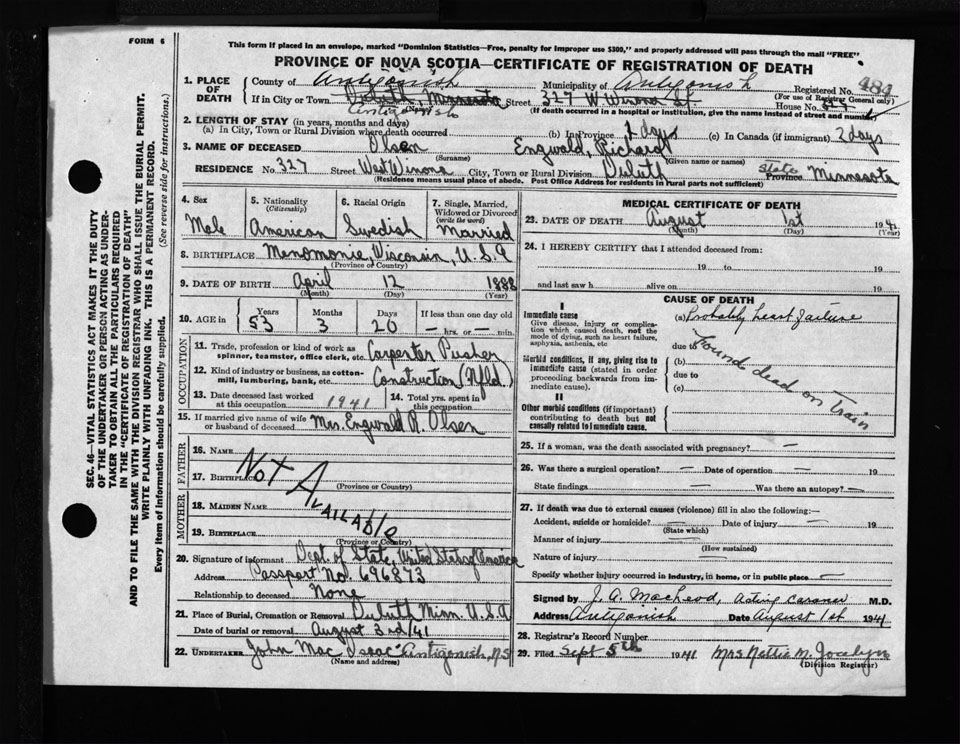 FORM 6
This form if placed in an envelope, marked "Dominion Statistics—Free, penalty for improper use $300," and properly addressed will pass through the mail "FREE"
PROVINCE OF NOVA SCOTIA—CERTIFICATE OF REGISTRATION OF DEATH
1. PLACE OF DEATH County of Antigonish Municipality of Antigonish Registered No. 484
(For use of Registrar General only)
If in City or Town Duluth, Minnesota Street 327 W Winona St. House No. 327
(Name)
(If death occurred in a hospital or institution, give the name instead of street and number)
2. LENGTH OF STAY (in years, months and days)
(a) In City, Town or Rural Division where death occurred (b) In Province 2 days (c) In Canada (if immigrant) 2 days
3. NAME OF DECEASED Olsen Engwald, Richardt
(Surname) (Given name or names)
RESIDENCE No. 327 Street West Winona City, Town or Rural Division Duluth State Province Minnesota
(Residence means usual place of abode. Post Office Address for residents in rural parts not sufficient)
4. Sex Male
5. Nationality (Citizenship) American
6. Racial Origin Swedish
7. Single, Married, Widowed or Divorced (write the word) Married
8. BIRTHPLACE Menomonie, Wisconsin, U.S.A
(Province or Country)
9. DATE OF BIRTH April 12 1888
(Month) (Day) (Year)
10. AGE in Years 53 Months 3 Days 20 If less than one day old
— hrs. or — min.
OCCUPATION
11. Trade, profession or kind of work as spinner, teamster, office clerk, etc. Carpenter Pusher
12. Kind of industry or business, as cotton-mill, lumbering, bank, etc. Construction (Nfld)
13. Date deceased last worked at this occupation 1941
14. Total yrs. spent in this occupation
15. If married give name of wife or husband of deceased Mrs. Engwald R. Olsen
FATHER
16. NAME
17. BIRTHPLACE
(Province or Country)
Not Available
MOTHER
18. MAIDEN NAME
19. BIRTHPLACE
(Province or Country)
20. Signature of informant Dept. of State, United States of America
Address Passport No. 696873
Relationship to deceased None
21. Place of Burial, Cremation or Removal Duluth Minn. U.S.A
Date of burial or removal August 3rd/41
22. UNDERTAKER John Mac Isaac Antigonish, NS
(Name and address)
MEDICAL CERTIFICATE OF DEATH
23. DATE OF DEATH August 1st 1941
(Month) (Day) (Year)
24. I HEREBY CERTIFY that I attended deceased from:
19 to 19
and last saw h alive on 19
CAUSE OF DEATH
I
Immediate cause
Give disease, injury or complication which caused death, not the mode of dying, such as heart failure, asphyxia, asthenia, etc
(a) Probably heart failure
due to
Morbid conditions, if any, giving rise to immediate cause (stated in order proceeding backwards from immediate cause).
(b)
due to
(c)
Found dead on train
II
Other morbid conditions (if important) contributing to death but not causally related to immediate cause.
25. If a woman, was the death associated with pregnancy? —
26. Was there a surgical operation? — Date of operation — 19
State findings Was there an autopsy? —
27. If death was due to external causes (violence) fill in also the following:—
Accident, suicide or homicide? — Date of injury — 19
(State which)
Manner of injury
(How sustained)
Nature of injury
Specify whether injury occurred in industry, in home, or in public place —
Signed by J. A. MacLeod, Acting Coroner M.D.
Address Antigonish Date August 1st 1941
28. Registrar's Record Number
29. Filed Sept 5th 1941 Mrs Nettie M. Jocelyn
(Division Registrar)
SEC. 46—VITAL STATISTICS ACT MAKES IT THE DUTY
OF THE UNDERTAKER OR PERSON ACTING AS UNDER-
TAKER TO OBTAIN ALL THE PARTICULARS REQUIRED
IN THE "CERTIFICATE OF REGISTRATION OF DEATH"
AND TO FILE THE SAME WITH THE DIVISION REGISTRAR WHO SHALL ISSUE THE BURIAL PERMIT.
WRITE PLAINLY WITH UNFADING INK. THIS IS A PERMANENT RECORD.
Every item of information should be carefully supplied. (See reverse side for instructions.)